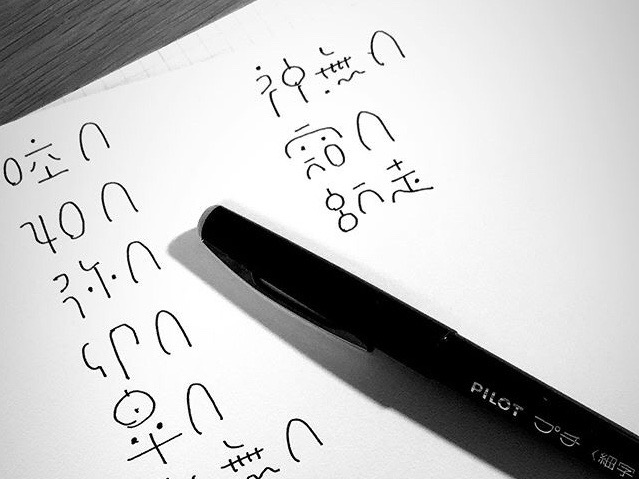 睦月
如月
弥
卯月
皐月
無月
神無月
霜月
師走
PILOT
〈細字